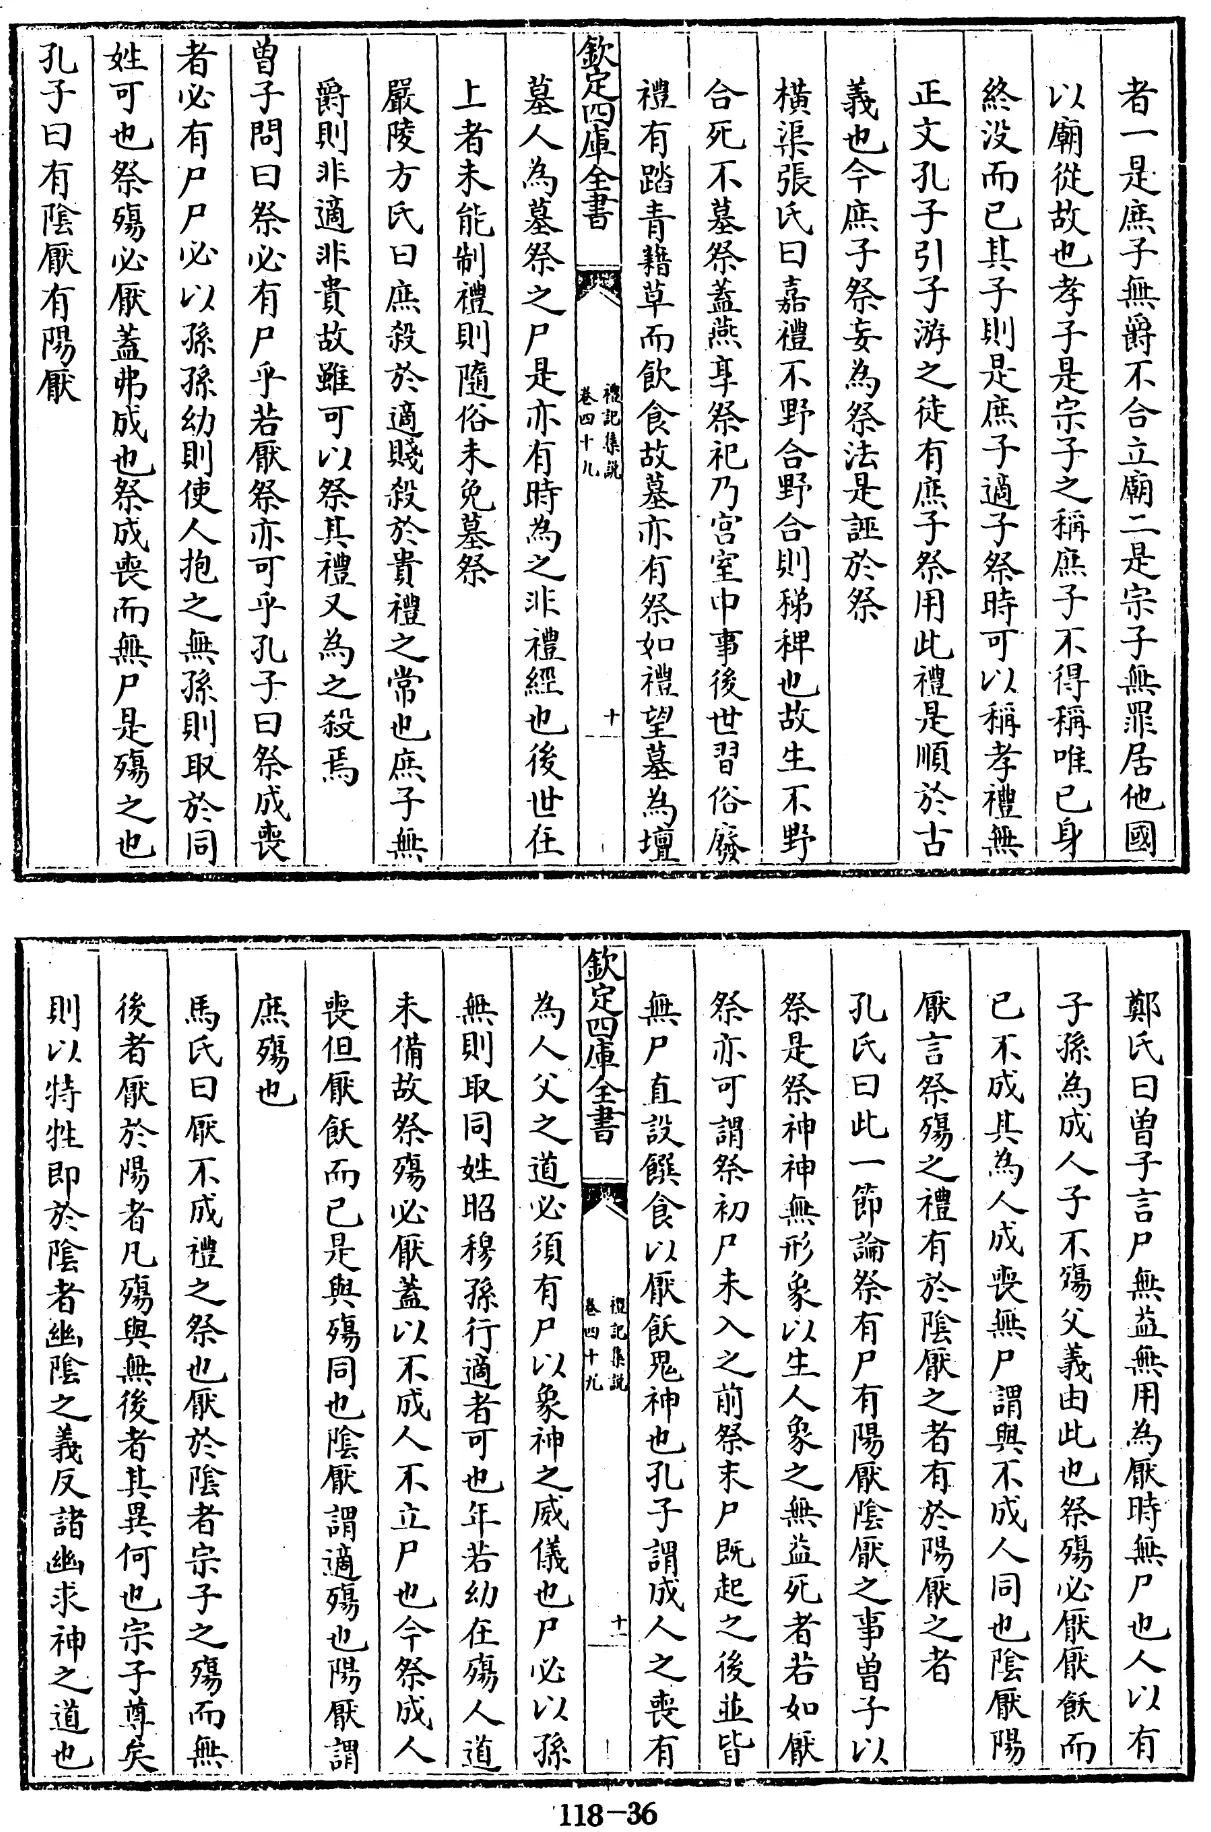 者一是庶子無爵不合立廟二是宗子無罪居他國
以廟從故也孝子是宗子之稱庶子不得稱唯己身
終没而已其子則是庶子適子祭時可以稱孝禮無
正文孔子引子游之徒有庶子祭用此禮是順於古
義也今庶子祭妄為祭法是誣於祭
橫渠張氏曰嘉禮不野合野合則稊稗也故生不野
合死不墓祭蓋燕享祭祀乃宫室中事後世習俗廢
禮有踏青藉草而飲食故墓亦有祭如禮望墓為壇
欽定四庫全書
禮記集說
卷四十九
十
墓人為墓祭之尸是亦有時為之非禮經也後世在
上者未能制禮則隨俗未免墓祭
嚴陵方氏曰庶殺於適賤殺於貴禮之常也庶子無
爵則非適非貴故雖可以祭其禮又為之殺焉
曾子問曰祭必有尸乎若厭祭亦可乎孔子曰祭成喪
者必有尸尸必以孫孫幼則使人抱之無孫則取於同
姓可也祭殤必厭蓋弗成也祭成喪而無尸是殤之也
孔子曰有陰厭有陽厭
鄭氏曰曾子言尸無益無用為厭時無尸也人以有
子孫為成人子不殤父義由此也祭殤必厭厭飫而
已不成其為人成喪無尸謂與不成人同也陰厭陽
厭言祭殤之禮有於陰厭之者有於陽厭之者
孔氏曰此一節論祭有尸有陽厭陰厭之事曾子以
祭是祭神神無形象以生人象之無益死者若如厭
祭亦可謂祭初尸未入之前祭末尸既起之後並皆
無尸直設饌食以厭飫鬼神也孔子謂成人之喪有
欽定四庫全書
禮記集說
卷四十九
十一
為人父之道必須有尸以象神之威儀也尸必以孫
無則取同姓昭穆孫行適者可也年若幼在殤人道
未備故祭殤必厭蓋以不成人不立尸也今祭成人
喪但厭飫而已是與殤同也陰厭謂適殤也陽厭謂
庶殤也
馬氏曰厭不成禮之祭也厭於陰者宗子之殤而無
後者厭於陽者凡殤與無後者其異何也宗子尊矣
則以特牲即於陰者幽陰之義反諸幽求神之道也
118-36